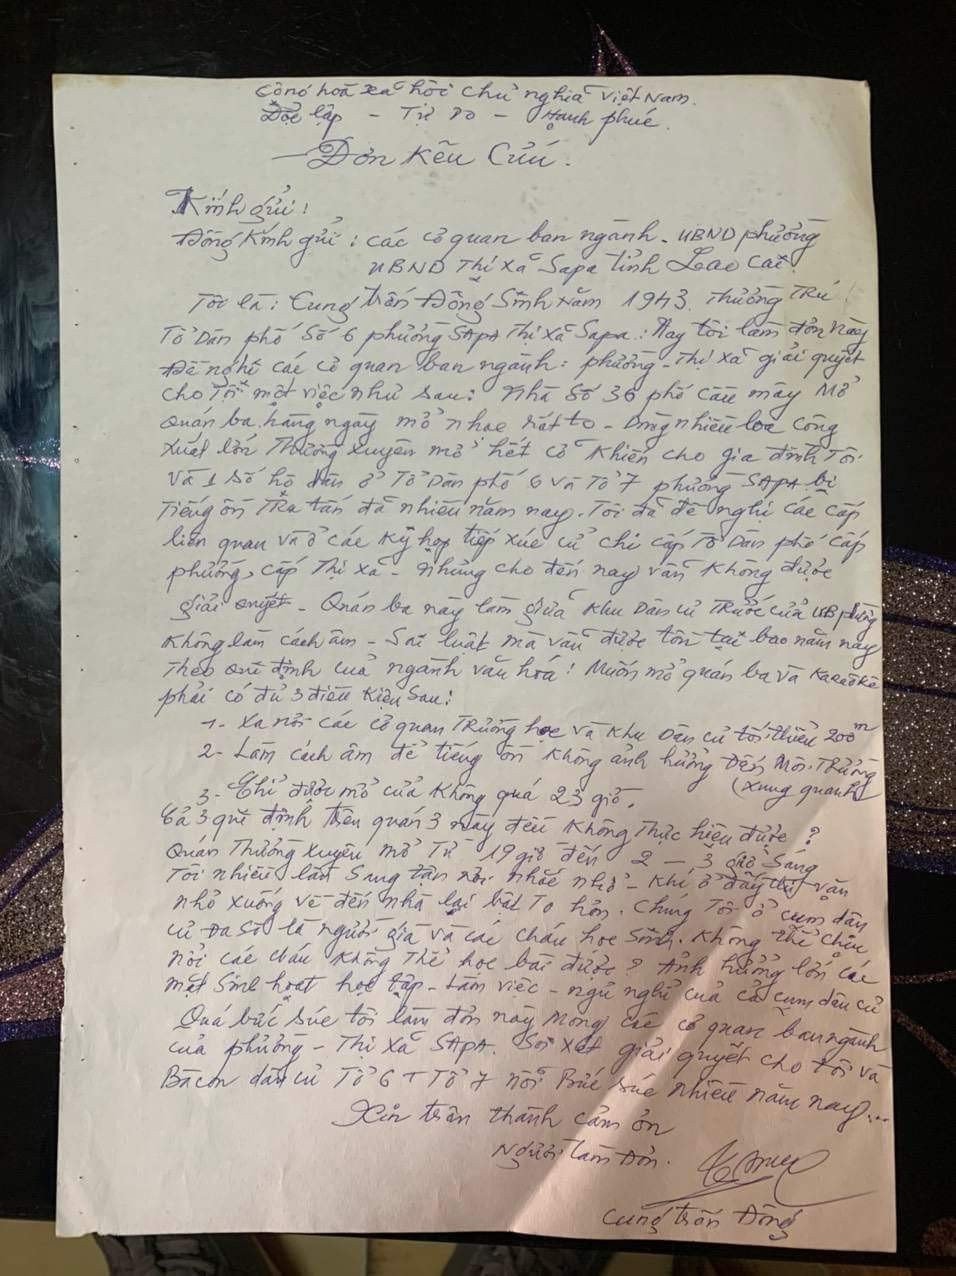 Cộng hoà xã hội chủ nghĩa Việt Nam.
Độc lập - Tự Do - Hạnh phúc.
Đơn Kêu Cứu.
Kính gửi!
Đồng Kính gửi: các cơ quan ban ngành. UBND phường
UBND Thị xã Sapa tỉnh Lao Cai.
Tôi là: Cung trần Đông Sinh Năm 1943. Thường Trú
Tổ Dân phố Số 6 phường SAPA Thị xã Sapa. Nay tôi làm đơn này
Đề nghị các cơ quan ban ngành: phường - Thị xã giải quyết
cho Tôi một việc như sau: Nhà Số 36 phố cầu mây Mở
Quán ba hàng ngày mở nhạc rất to - Dùng nhiều loa công
xuất lớn Thường xuyên mở hết cỡ Khiến cho gia đình Tôi
Và 1 số hộ dân ở Tổ Dân phố 6 và Tổ 7 phường SAPA bị
Tiếng ồn Tra tấn đã nhiều năm nay. Tôi đã đề nghị các cấp
liên quan và ở các Kỳ họp tiếp xúc cử chi cấp Tổ Dân phố cấp
phường, cấp Thị xã - Nhưng cho đến nay vẫn Không được
giải quyết - Quán ba này làm giữa Khu Dân cư Trước cửa UB phường
Không làm cách âm - Sai luật mà vẫn được tồn tại bao năm nay
Theo qui định của ngành văn hoá! Muốn mở quán ba và Karaoke
phải có đủ 3 điều Kiện Sau:
1- Xa nơi các cơ quan Trường học và Khu Dân cư tối thiểu 200m
2- Làm cách âm để tiếng ồn Không ảnh hưởng Đến Môi Trường
(xung quanh)
3- Chỉ được mở cửa Không quá 23 giờ.
Cả 3 qui định trên quán 3 này đều Không Thực hiện được?
Quán Thường xuyên mở Từ 19 giờ đến 2 - 3 giờ Sáng
Tôi nhiều lần Sang tận nơi nhắc nhở - Khi ở đấy thì vặn
nhỏ xuống về đến nhà lại bật To hơn. Chúng Tôi ở cụm dân
cư Đa Số là người già và các cháu học sinh. Không thể chịu
nổi các cháu Không Thể học bài được? Ảnh hưởng lớn các
mặt Sinh hoạt học tập - Làm việc - ngủ nghỉ của cả cụm dân cư
Quá bức xúc tôi làm đơn này Mong các cơ quan ban ngành
của phường - Thị xã SAPA. Soi xét giải quyết cho tôi và
Bà con dân cư Tổ 6 + Tổ 7 nỗi Bức xúc nhiều năm nay...
Xin trân thành cảm ơn
Người làm Đơn.
Cung trần Đông